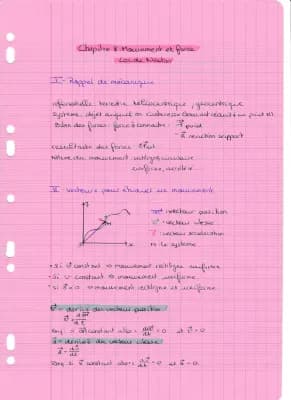 Chapitre 8 Mouvement et force
Lois de Newton
I - Rappel de mécanique
référentielle : terrestre héliocentrique, géocentrique
système : objet auquel on s'intéresse
Bilan des forces : force à connaître : P poid
R reaction support
résultante des forces
Nature du mouvement rectiligne
uniforme, accéléré
II - vecteurs pour étudier un mouvement
y
x
M
OM : vecteur position
v : vecteur vitesse
a : vecteur accélération
M le système
• si v constant → mouvement rectiligne uniforme
• si v constant → mouvement uniforme
• si a = 0 → mouvement rectiligne et uniforme
v = dérivé du vecteur position
v = dOM/dt
Rmq : si OM constant alors : dOM/dt = 0 et v = 0
a = dérivée du vecteur vitesse
a = dv/dt
Rmq : si v constant alors : dv/dt = 0 et a = 0.